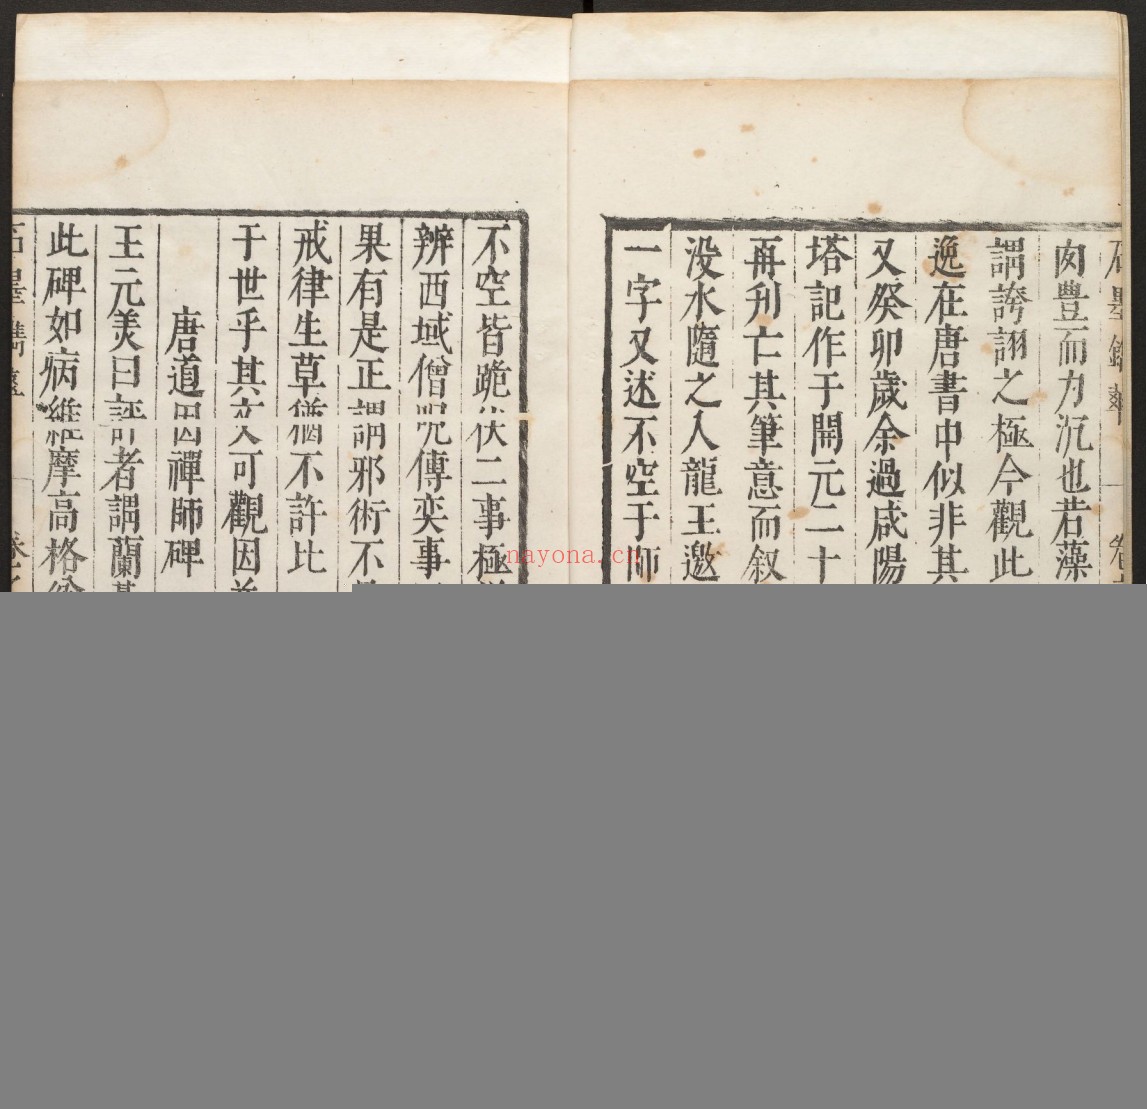 肉豐而力沉也若藻
謂誇詡之極今觀此
逸在唐書中似非其
又癸卯歲余過咸陽
塔記作于開元二十
再刋亡其筆意而叙
没水隨之入龍王邀
一字又述不空于師
不空皆跪伏二事極
辨西域僧呪傳奕事
果有是正謂邪術不
戒律生草猶不許比
于世乎其文可觀因
唐道因禪師碑
王元美曰評者謂蘭
此碑如病維摩高格
nayona.cn